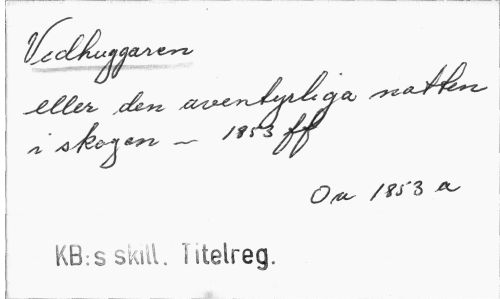 Vedhuggaren
eller den aventyrliga natten
i skogen – 1853 ff
Ou 1853 a
KB:s skill. Titelreg.